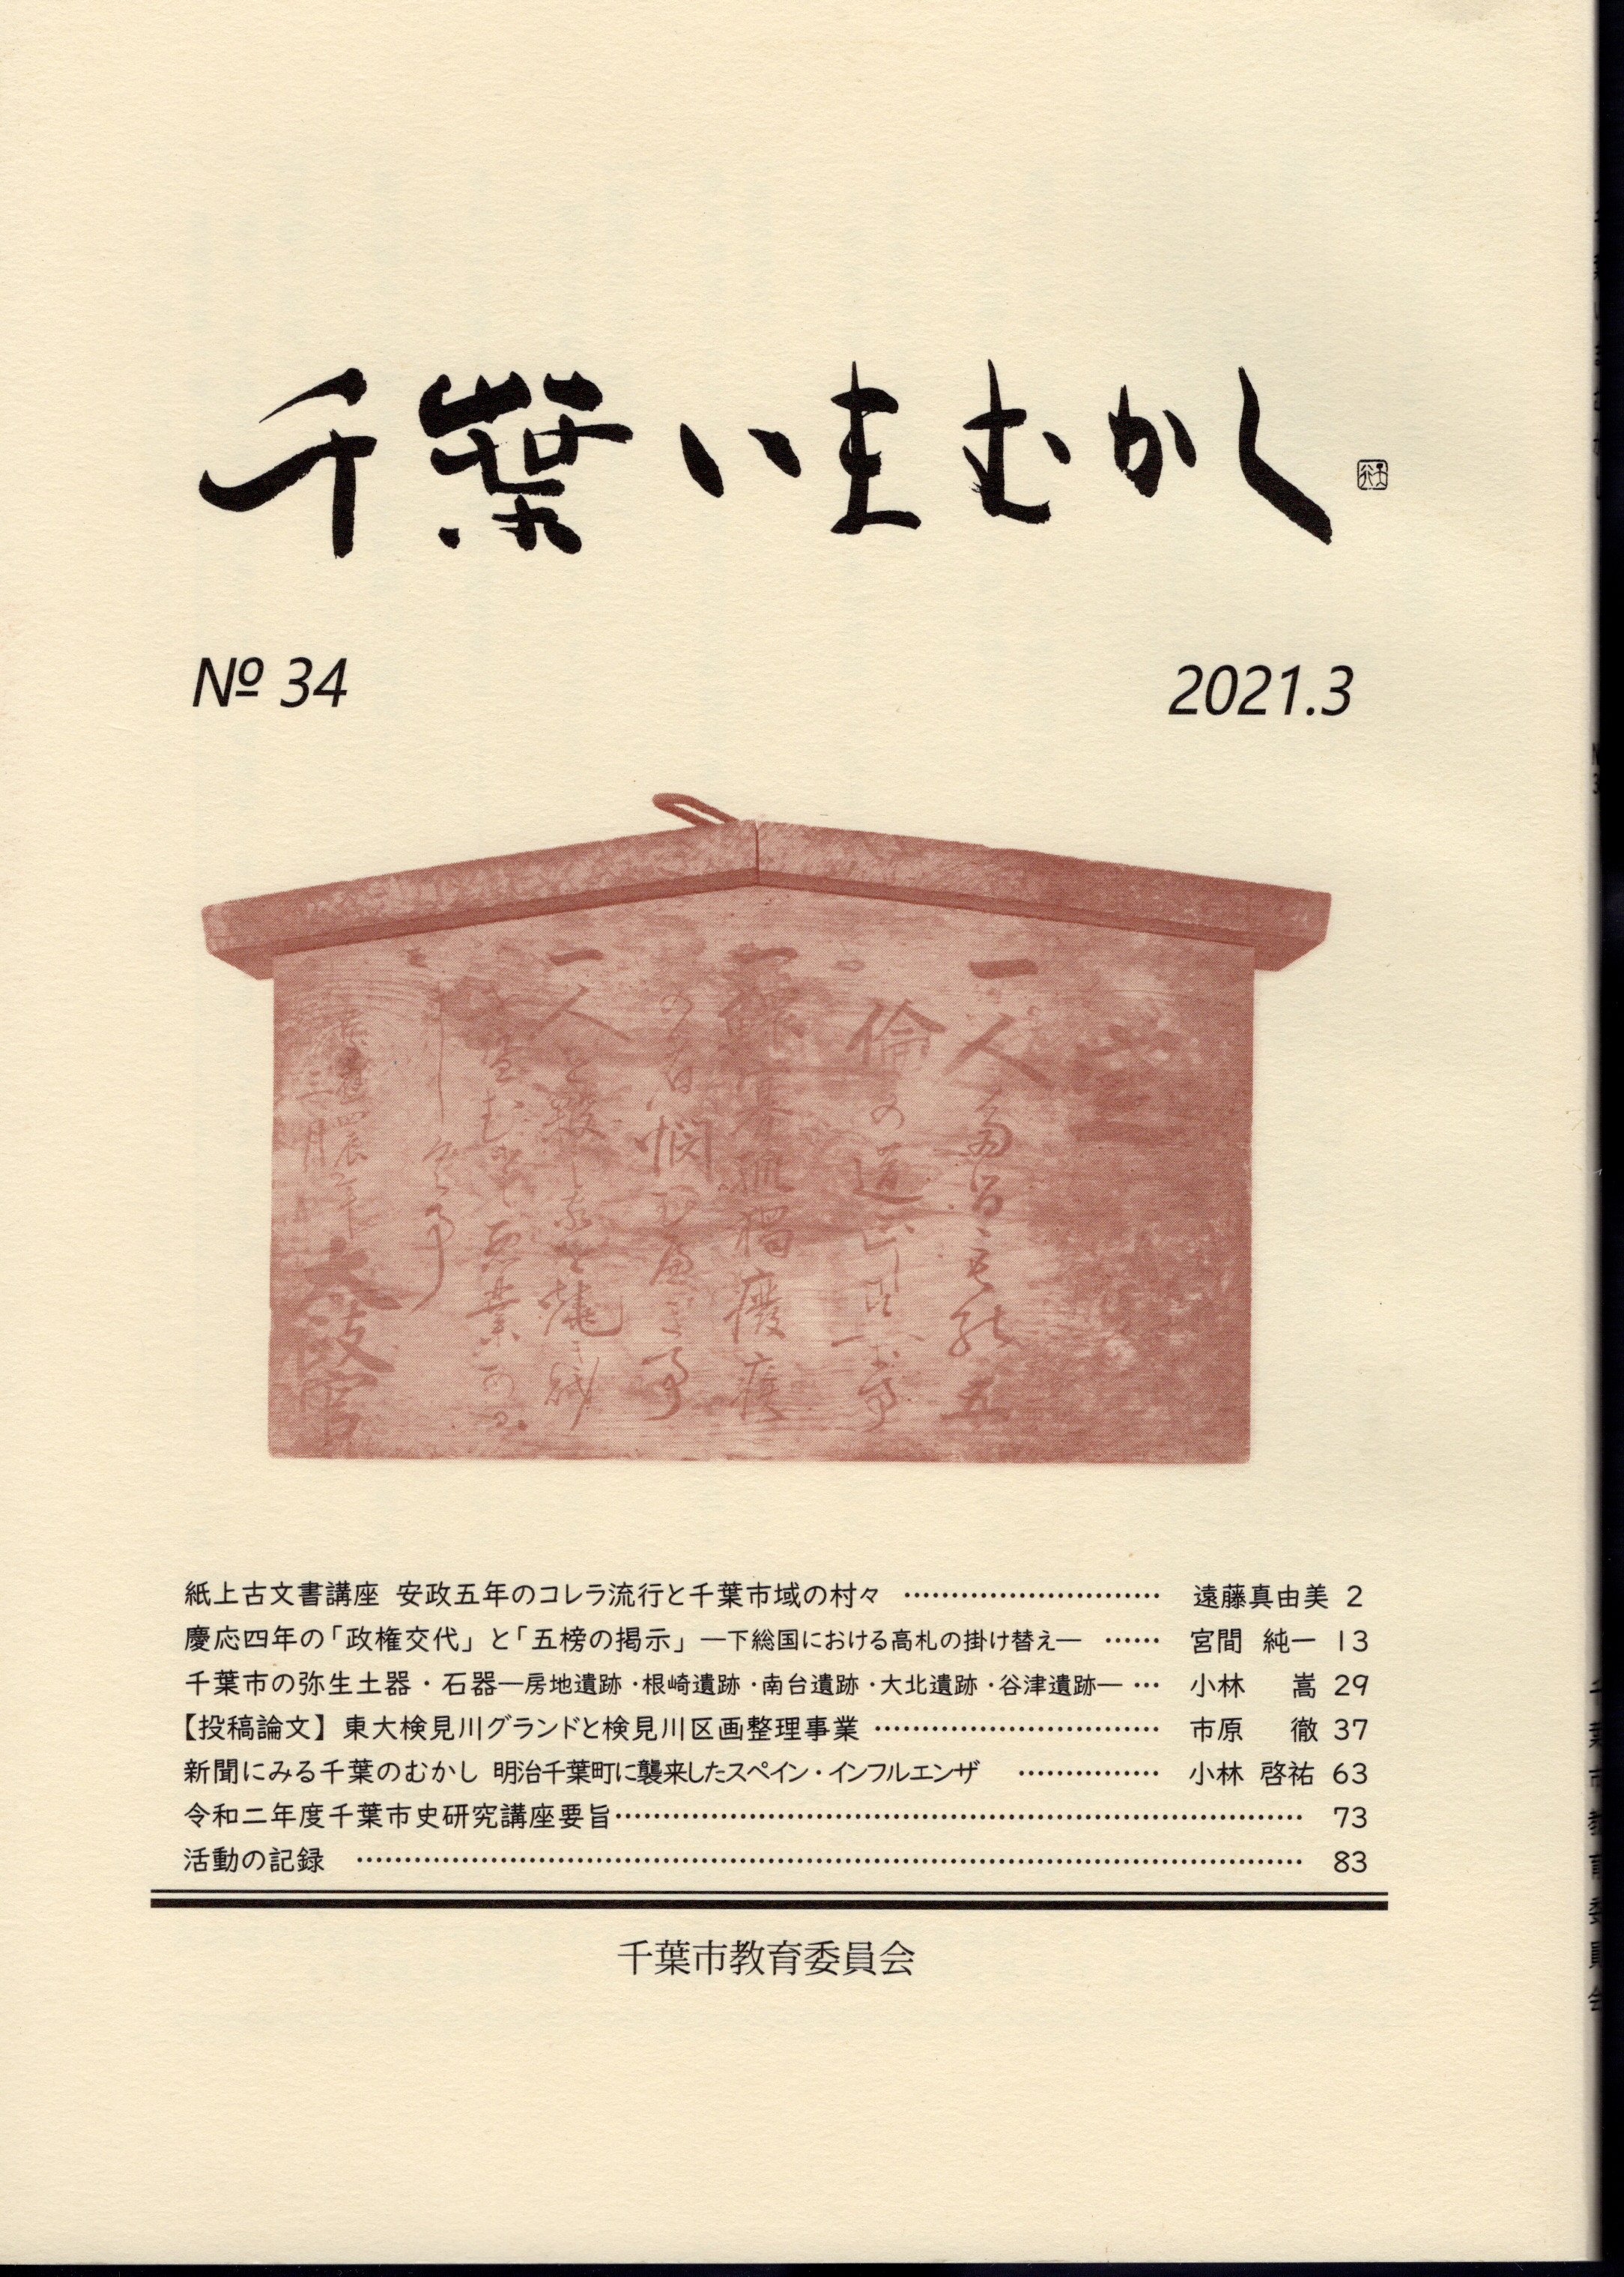 千葉いまむかし
№ 34
2021.3
定
一人たるもの五
倫の道正しくすへき事
一鰥寡孤独癈疾
のものを憫むへき事
一人を殺し家を焼き財
を盗む等の悪業ある
ましく事
慶應四辰年
三月
太政官
紙上古文書講座 安政五年のコレラ流行と千葉市域の村々 ………………………… 遠藤真由美 2
慶応四年の「政権交代」と「五榜の掲示」―下総国における高札の掛け替え― …… 宮間 純一 13
千葉市の弥生土器・石器―房地遺跡・根崎遺跡・南台遺跡・大北遺跡・谷津遺跡― … 小林 嵩 29
【投稿論文】東大検見川グランドと検見川区画整理事業 …………………………… 市原 徹 37
新聞にみる千葉のむかし 明治千葉町に襲来したスペイン・インフルエンザ …………… 小林 啓祐 63
令和二年度千葉市史研究講座要旨…………………………………………………………… 73
活動の記録 ……………………………………………………………………………… 83
千葉市教育委員会